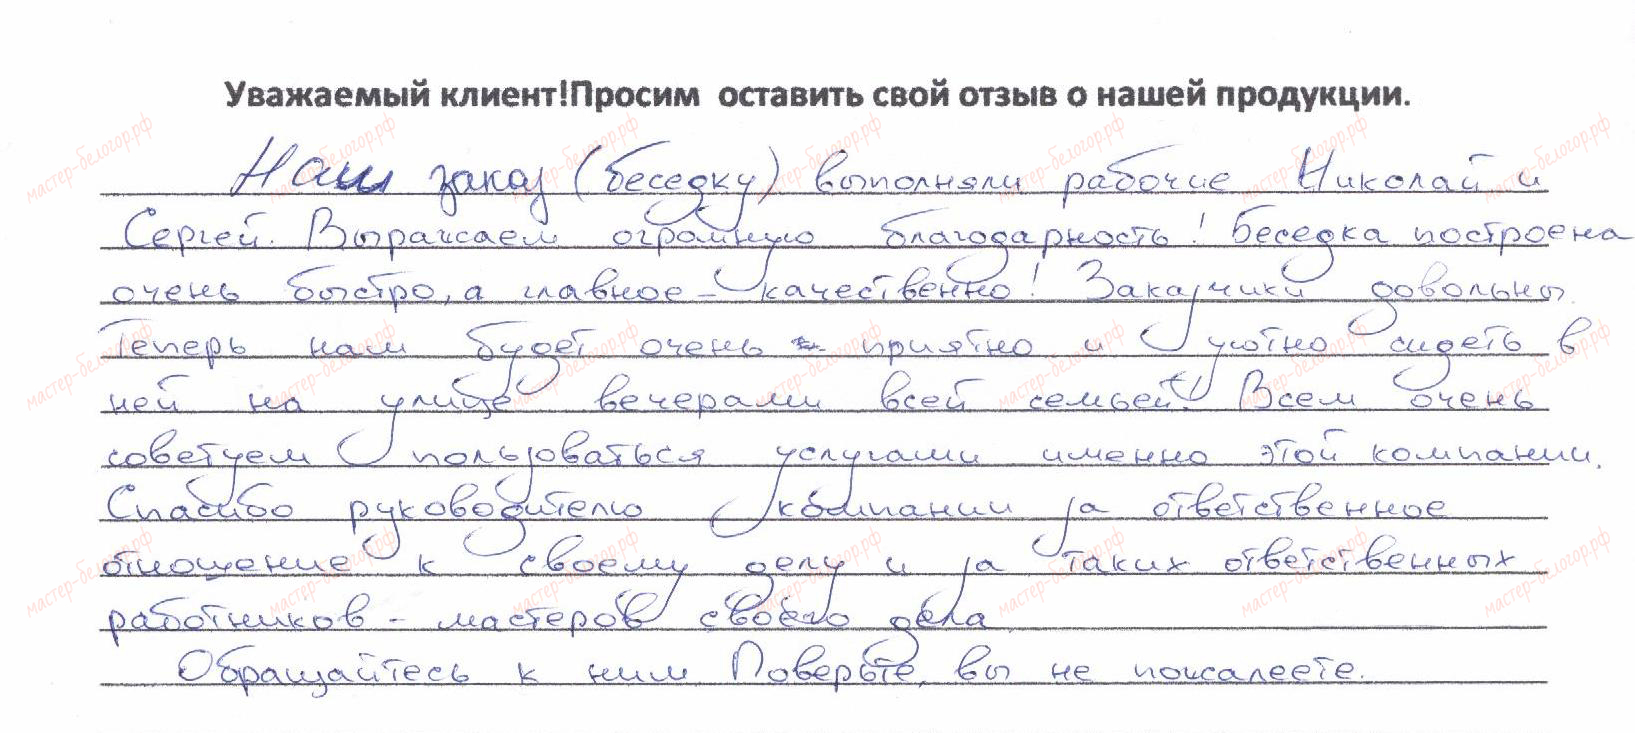 Уважаемый клиент!Просим оставить свой отзыв о нашей продукции.
Наш заказ (беседку) выполняли рабочие Николай и
Сергей. Выражаем огромную благодарность! Беседка построена
очень быстро, а главное - качественно! Заказчики довольны.
Теперь нам будет очень приятно и уютно сидеть в
ней на улице вечерами всей семьей! Всем очень
советуем пользоваться услугами именно этой компании.
Спасибо руководителю компании за ответственное
отношение к своему делу и за таких ответственных
работников - мастеров своего дела.
Обращайтесь к ним Поверьте, вы не пожалеете.
мастер-белогор.рф